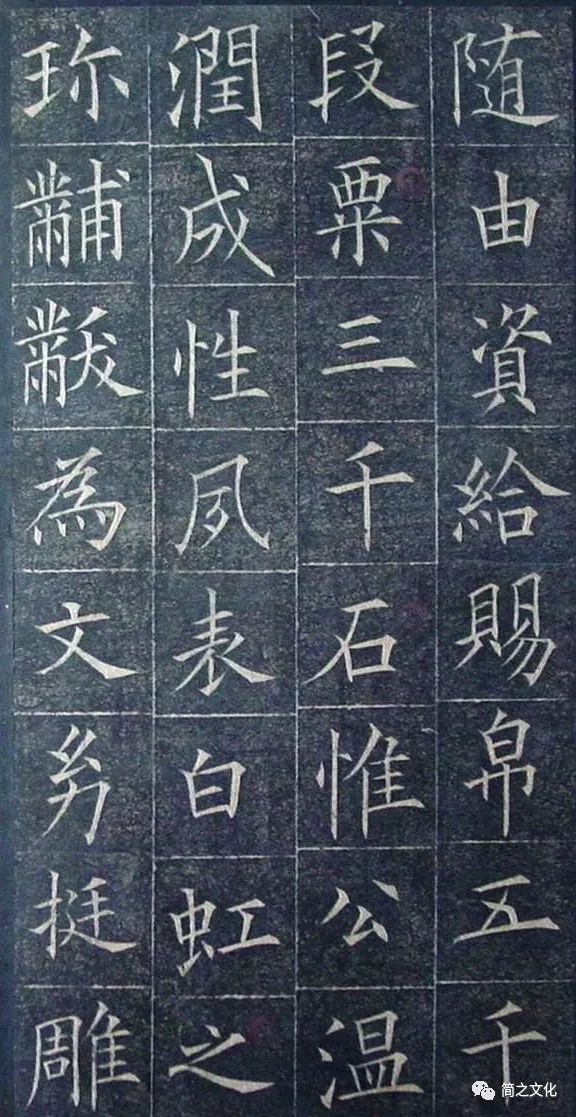 随由資給賜帛五千
段粟三千石惟公温
潤成性夙表白虹之
珎黼黻為文㓜挺雕
简之文化